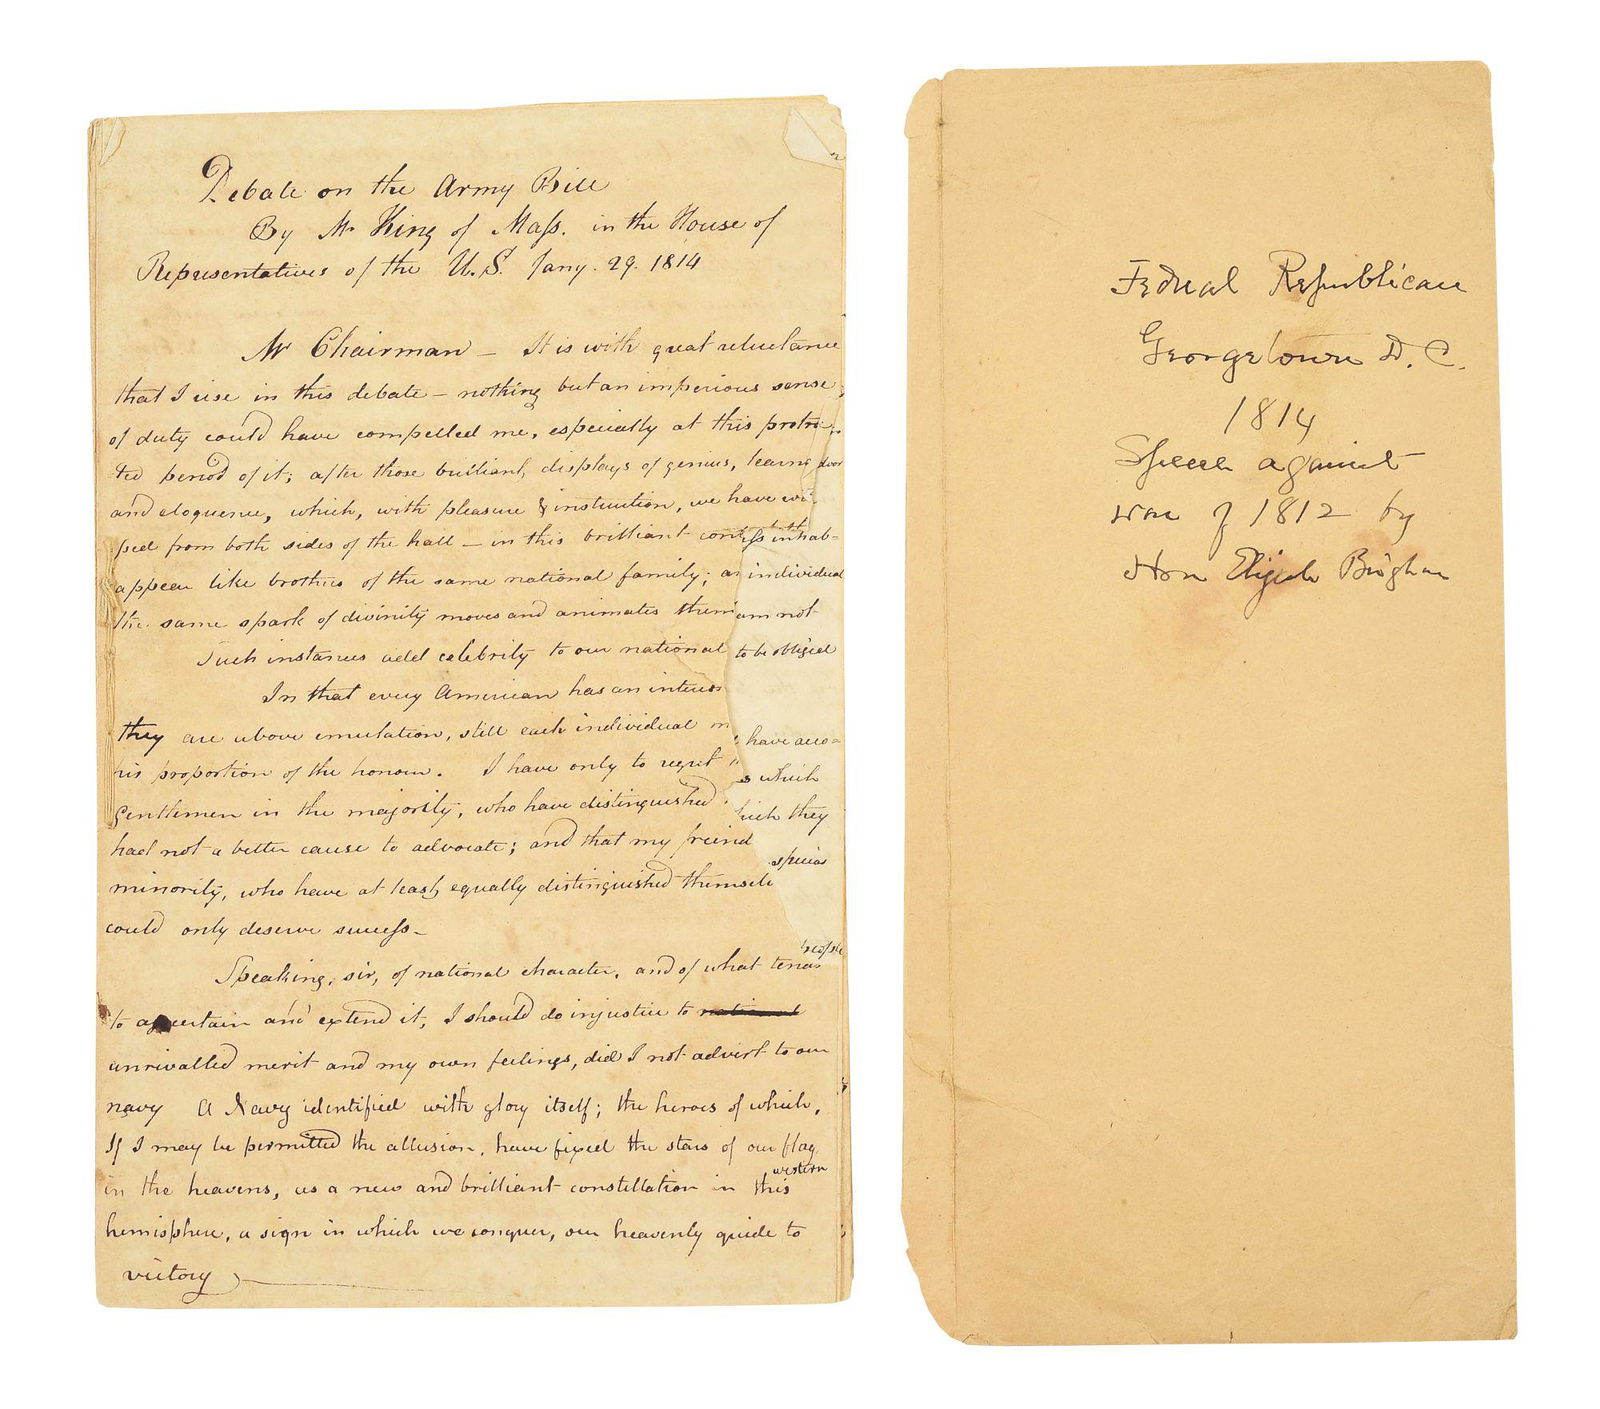 Debate on the Army Bill
By Mr King of Mass. in the House of
Representatives of the U.S. Jany. 29. 1814
Mr Chairman – It is with great reluctance
that I rise in this debate – nothing but an imperious sense
of duty could have compelled me, especially at this protrac
ted period of it; after those brilliant displays of genius, learning
and eloquence, which, with pleasure & instruction, we have wi
sed from both sides of the hall – in this brilliant contest
appear like brothers of the same national family; as
the same spark of divinity moves and animates them
Such instances add celebrity to our national
In that every American has an interes
they are above emulation, still each individual m
his proportion of the honour. I have only to regret
Gentlemen in the majority, who have distinguished
had not a better cause to advocate; and that my freind
minority, who have at least equally distinguished themselv
could only deserve success –
Speaking, sir, of national character, and of what tends
to ascertain and extend it, I should do injustice to national
unrivalled merit and my own feelings, did I not advert to our
navy A Navy identified with glory itself; the heroes of which,
If I may be permitted the allusion, have fixed the stars of our flag
western
in the heavens, as a new and brilliant constellation in this
hemisphere, a sign in which we conquer, our heavenly guide to
victory
inhab-
individual
am not
to be obliged
have acco=
which
they
species
people
Federal Republican
Georgetown D. C.
1814
Speech against
war of 1812 by
Hon Elijah Brigham